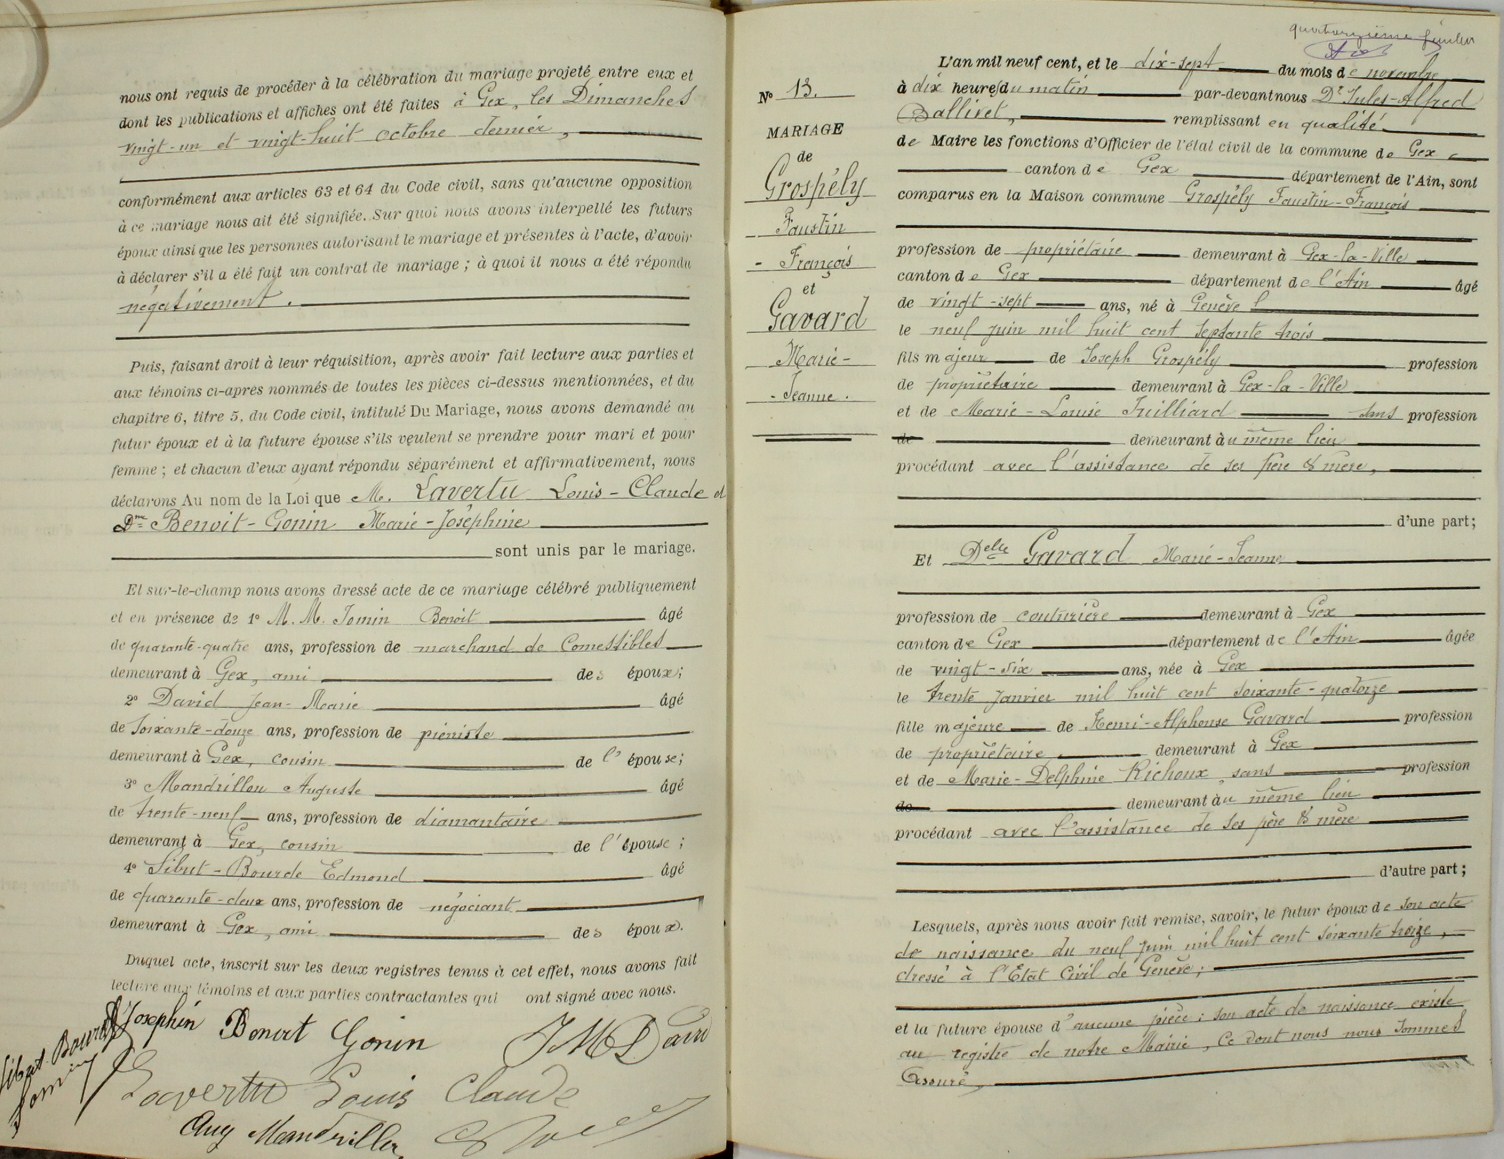 nous ont requis de procéder à la célébration du mariage projeté entre eux et
dont les publications et affiches ont été faites à Gex, les Dimanches
vingt-un et vingt-huit octobre dernier,
conformément aux articles 63 et 64 du Code civil, sans qu'aucune opposition
à ce mariage nous ait été signifiée. Sur quoi nous avons interpellé les futurs
époux ainsi que les personnes autorisant le mariage et présentes à l'acte, d'avoir
à déclarer s'il a été fait un contrat de mariage ; à quoi il nous a été répondu
négativement.
Puis, faisant droit à leur réquisition, après avoir fait lecture aux parties et
aux témoins ci-après nommés de toutes les pièces ci-dessus mentionnées, et du
chapitre 6, titre 5, du Code civil, intitulé Du Mariage, nous avons demandé au
futur époux et à la future épouse s'ils veulent se prendre pour mari et pour
femme ; et chacun d'eux ayant répondu séparément et affirmativement, nous
déclarons Au nom de la Loi que M. Lavertu Louis-Claude et
Dme Benoit-Gonin Marie-Joséphine
sont unis par le mariage.
Et sur-le-champ nous avons dressé acte de ce mariage célébré publiquement
et en présence de 1° M.M. Jomin Benoit âgé
de quarante-quatre ans, profession de marchand de Comestibles
demeurant à Gex, ami des époux ;
2° David Jean-Marie âgé
de soixante-douze ans, profession de piériste
demeurant à Gex, cousin de l'épouse ;
3° Mandrillon Auguste âgé
de trente-neuf ans, profession de diamantaire
demeurant à Gex, cousin de l'épouse ;
4° Sibut-Bourde Edmond âgé
de quarante-deux ans, profession de négociant
demeurant à Gex, ami des époux.
Duquel acte, inscrit sur les deux registres tenus à cet effet, nous avons fait
lecture aux témoins et aux parties contractantes qui ont signé avec nous.
Sibut Bourde
Jomin
Josephin Benoit Gonin
JM David
Lavertu Louis Claude
Aug Mandrillon
quatorzième feuillet
N° 13.
MARIAGE
de
Grospély
Faustin
- François
et
Gavard
Marie-
- Jeanne.
L'an mil neuf cent, et le dix-sept du mois de novembre
à dix heures du matin par-devant nous Dr Jules-Alfred
Ballivet, remplissant en qualité
de Maire les fonctions d'Officier de l'état civil de la commune de Gex
canton de Gex département de l'Ain, sont
comparus en la Maison commune Grospély Faustin-François
profession de propriétaire demeurant à Gex-la-Ville
canton de Gex département de l'Ain âgé
de vingt-sept ans, né à Genève
le neuf juin mil huit cent septante trois
fils majeur de Joseph Grospély profession
de propriétaire demeurant à Gex-la-Ville
et de Marie-Louise Juilliard sans profession
de demeurant au même lieu
procédant avec l'assistance de ses père & mère,
d'une part ;
Et Delle Gavard Marie-Jeanne
profession de couturière demeurant à Gex
canton de Gex département de l'Ain âgée
de vingt-six ans, née à Gex
le trente Janvier mil huit cent soixante-quatorze
fille majeure de Henri-Alphonse Gavard profession
de propriétaire demeurant à Gex
et de Marie-Delphine Richoux, sans profession
de demeurant au même lieu
procédant avec l'assistance de ses père & mère
d'autre part ;
Lesquels, après nous avoir fait remise, savoir, le futur époux de son acte
de naissance du neuf juin mil huit cent soixante treize,
dressé à l'Etat Civil de Genève ;
et la future épouse d'aucune pièce ; son acte de naissance existe
au registre de notre Mairie, Ce dont nous nous sommes
assuré,